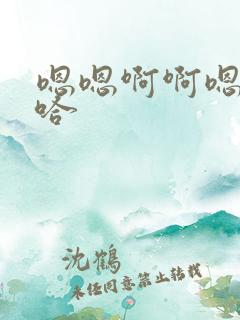 嗯嗯啊啊嗯
哈
沈鹤
未经同意禁止转载